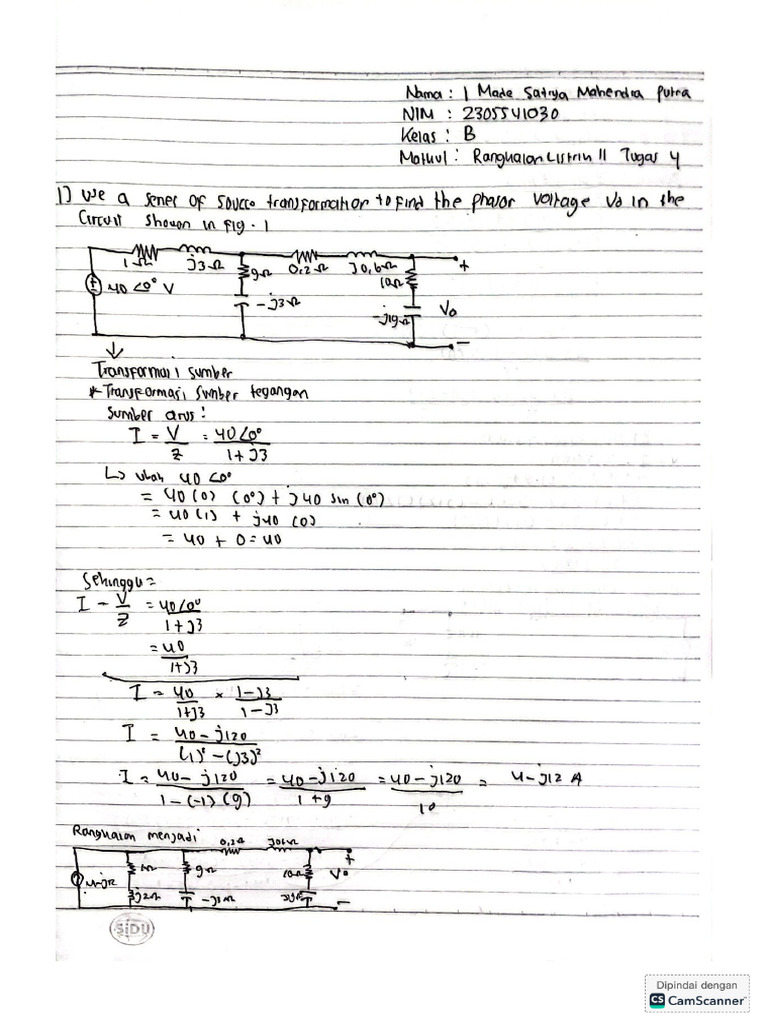 Nama : I Made Satrya Mahendra Putra
NIM : 2305541030
Kelas : B
Matkul : Rangkaian Listrik II Tugas 4
1) Use a series of source transformation to find the phasor voltage Vo in the
Circuit shown in fig. 1
1Ω j3Ω 9Ω 0.2Ω j0,6Ω + 10Ω
40 <0° V -j3Ω Vo
-j19Ω -
↓
Transformasi sumber
* Transformasi sumber tegangan
Sumber arus :
I = V/z = 40∠0°/1+j3
↳ ubah 40 <0°
= 40 (0) (0°) + j40 sin (0°)
= 40 (1) + j40 (0)
= 40 + 0 = 40
Sehingga =
I = V/z = 40∠0°/1+j3
= 40/1+j3
I = 40/1+j3 × 1-j3/1-j3
I = 40-j120/(1)² - (j3)²
I = 40-j120/1-(-1)(9) = 40-j120/1+9 = 40-j120/10 = 4-j12 A
Rangkaian menjadi
0,2Ω
+
4-j12 1Ω 9Ω 10Ω Vo
-j3Ω -
SIDU
Dipindai dengan
CS CamScanner